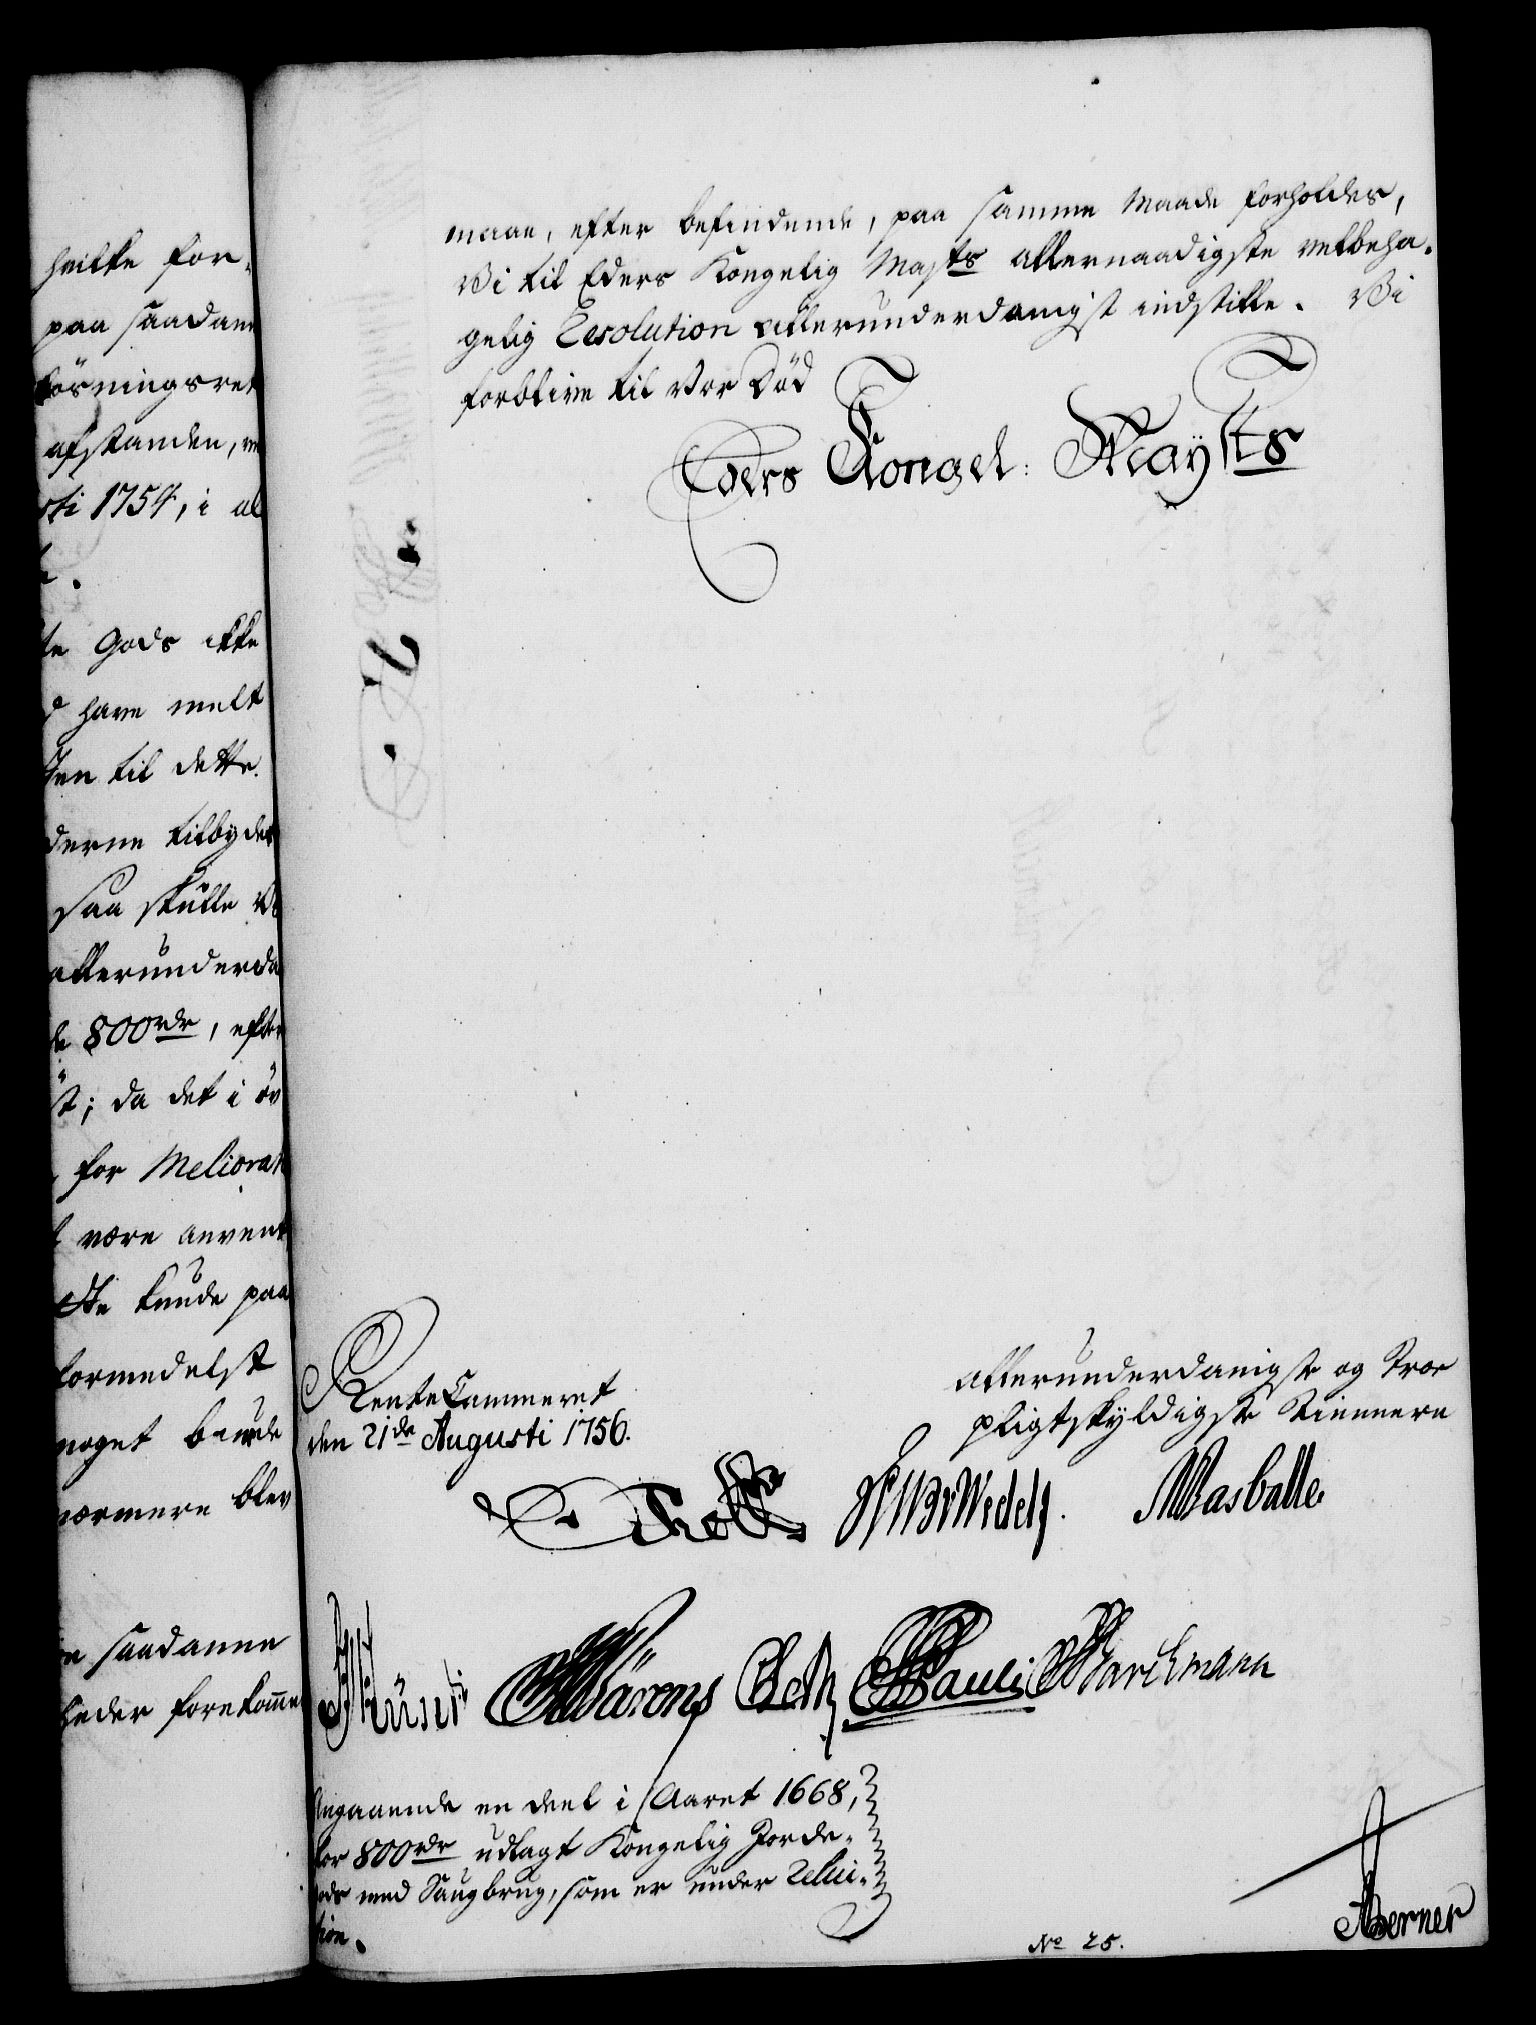 hvilke for-
paa saadan
løsningsret
afstanden,
sti 1754, i al
te Gods ikke
have melt
ten til dette.
derne tilbyder
saa skulle V
allerunderda
de 800 rdr, efter
st; da det i øv
for Meliorat
være anvent
kunde paa
formedelst
noget burde
nærmere blev
saadanne
heder forekomme
maae, efter befindende, paa samme Maade forholdes,
Vi til Eders Kongelig Maysts allernaadigste velbeha-
gelig Resolution allerunderdanigst indstille. Vi
forblive til Vor Død
Eders Kongel: Maysts
RenteCammeret
den 21de Augusti 1756.
allerunderdanigste og Troe
pligtskyldigste Tiennere
Holst Wedel MWasballe
Pauli Barchmann
Angaaende en deel i Aaret 1668,
for 800 rdr udlagt Kongelig Jorde-
gods med Saugbrug, som er under Relui-
tion.
No 25.
Berner